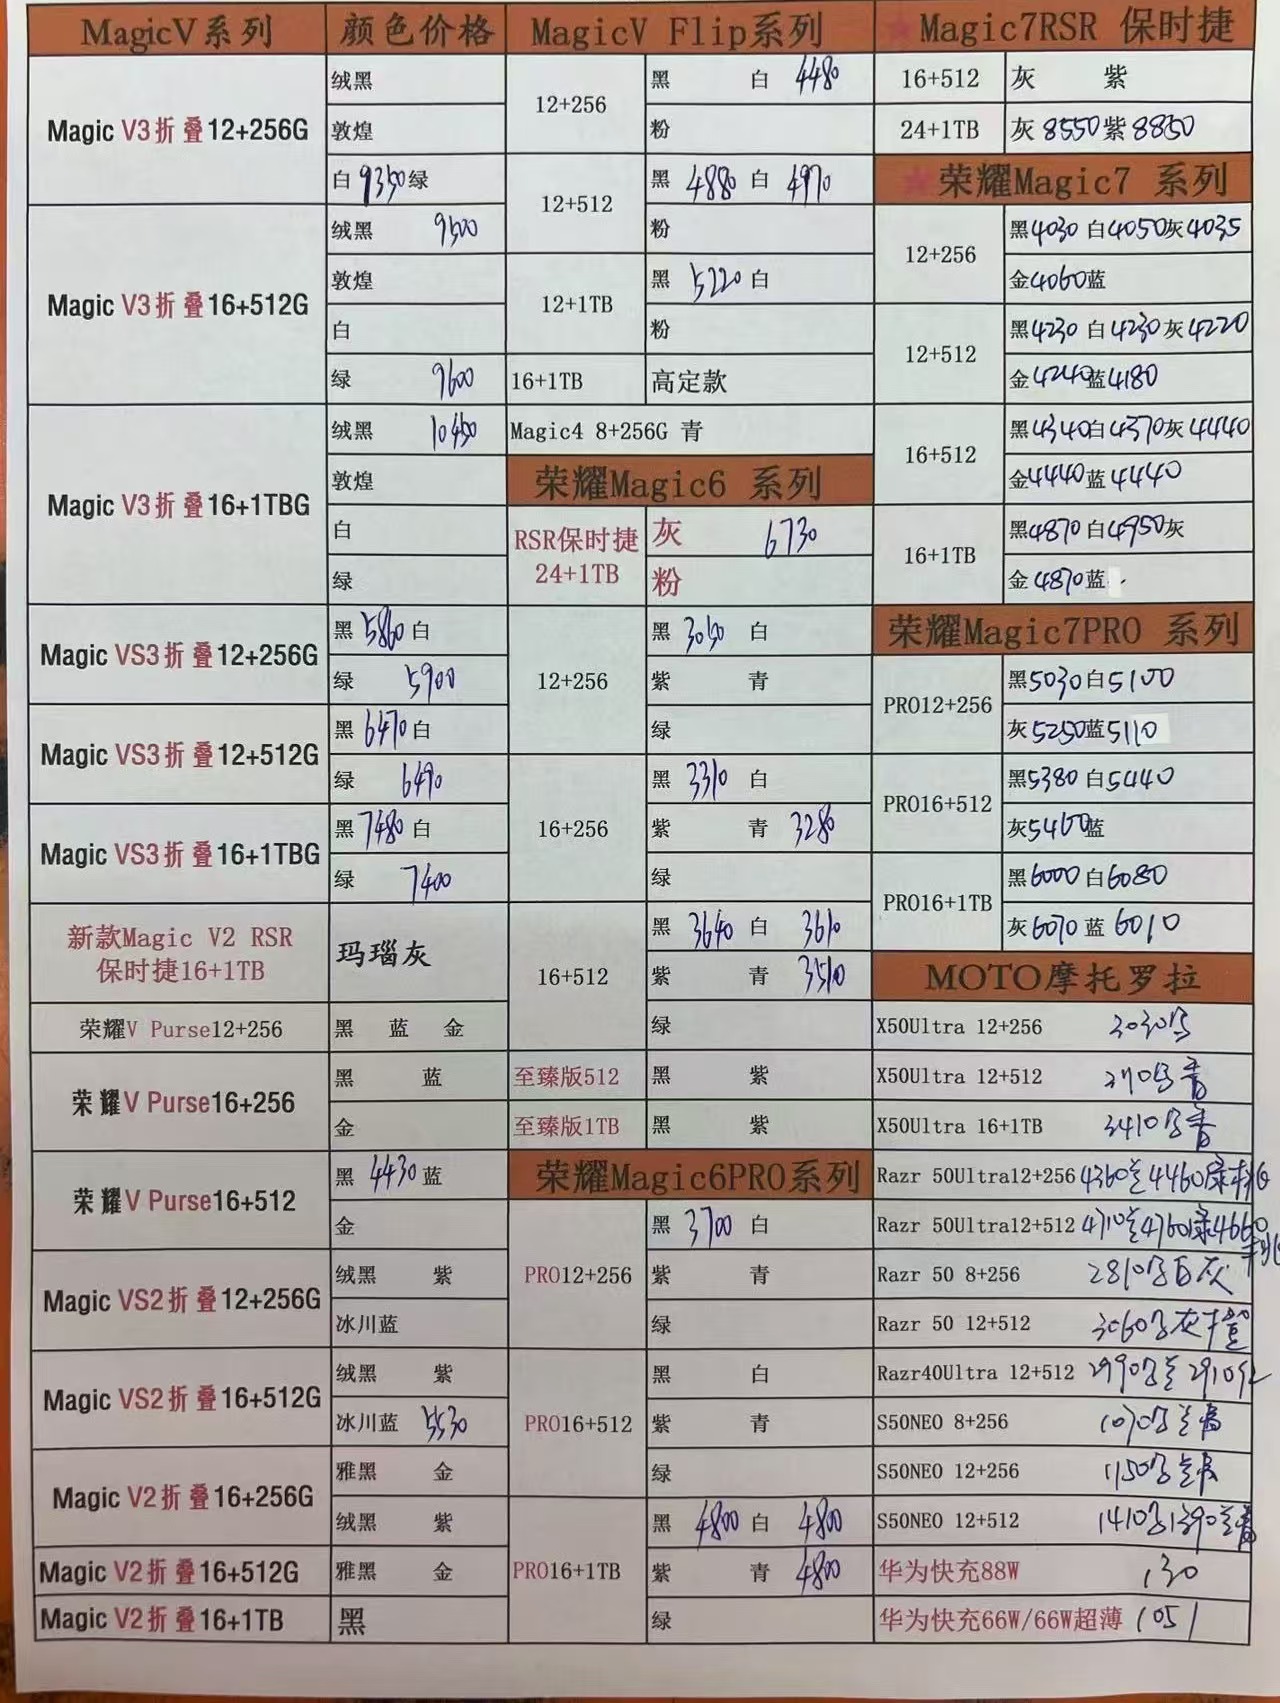 MagicV系列 颜色价格
Magic V3折叠12+256G
绒黑
敦煌
白 9350 绿
Magic V3折叠16+512G
绒黑 9500
敦煌
白
绿 9600
Magic V3折叠16+1TBG
绒黑 10450
敦煌
白
绿
Magic VS3折叠12+256G
黑 5860 白
绿 5900
Magic VS3折叠12+512G
黑 6470 白
绿 6490
Magic VS3折叠16+1TBG
黑 7480 白
绿 7400
新款Magic V2 RSR
保时捷16+1TB
玛瑙灰
荣耀V Purse12+256 黑 蓝 金
荣耀V Purse16+256
黑 蓝
金
荣耀V Purse16+512
黑 4430 蓝
金
Magic VS2折叠12+256G
绒黑 紫
冰川蓝
Magic VS2折叠16+512G
绒黑 紫
冰川蓝 5530
Magic V2折叠16+256G
雅黑 金
绒黑 紫
Magic V2折叠16+512G 雅黑 金
Magic V2折叠16+1TB 黑
MagicV Flip系列
12+256
黑 白 4480
粉
12+512
黑 4880 白 4970
粉
12+1TB
黑 5220 白
粉
16+1TB 高定款
Magic4 8+256G 青
荣耀Magic6 系列
RSR保时捷
24+1TB
灰 6730
粉
12+256
黑 3050 白
紫 青
绿
16+256
黑 3310 白
紫 青 3280
绿
16+512
黑 3640 白 3610
紫 青 3510
绿
至臻版512 黑 紫
至臻版1TB 黑 紫
荣耀Magic6PRO系列
PRO12+256
黑 3700 白
紫 青
绿
PRO16+512
黑 白
紫 青
绿
PRO16+1TB
黑 4800 白 4800
紫 青 4800
绿
★ Magic7RSR 保时捷
16+512 灰 紫
24+1TB 灰 8550 紫 8850
★荣耀Magic7 系列
12+256
黑4030 白4050灰4035
金4060蓝
12+512
黑4230 白4230灰4220
金4240蓝4180
16+512
黑4340白4370灰4440
金4440蓝4440
16+1TB
黑4870白4950灰
金4870蓝
荣耀Magic7PRO 系列
PRO12+256
黑5030白5100
灰5250蓝5110
PRO16+512
黑5380白5440
灰5460蓝
PRO16+1TB
黑6000白6080
灰6070蓝6010
MOTO摩托罗拉
X50Ultra 12+256
X50Ultra 12+512
X50Ultra 16+1TB 3410
Razr 50Ultra12+256 4360兰4460绿桃
Razr 50Ultra12+512 4710兰4760绿4660
桃
Razr 50 8+256 2810
Razr 50 12+512 3060
Razr40Ultra 12+512 2990
S50NEO 8+256 1070
S50NEO 12+256 1150
S50NEO 12+512 1410
华为快充88W 130
华为快充66W/66W超薄